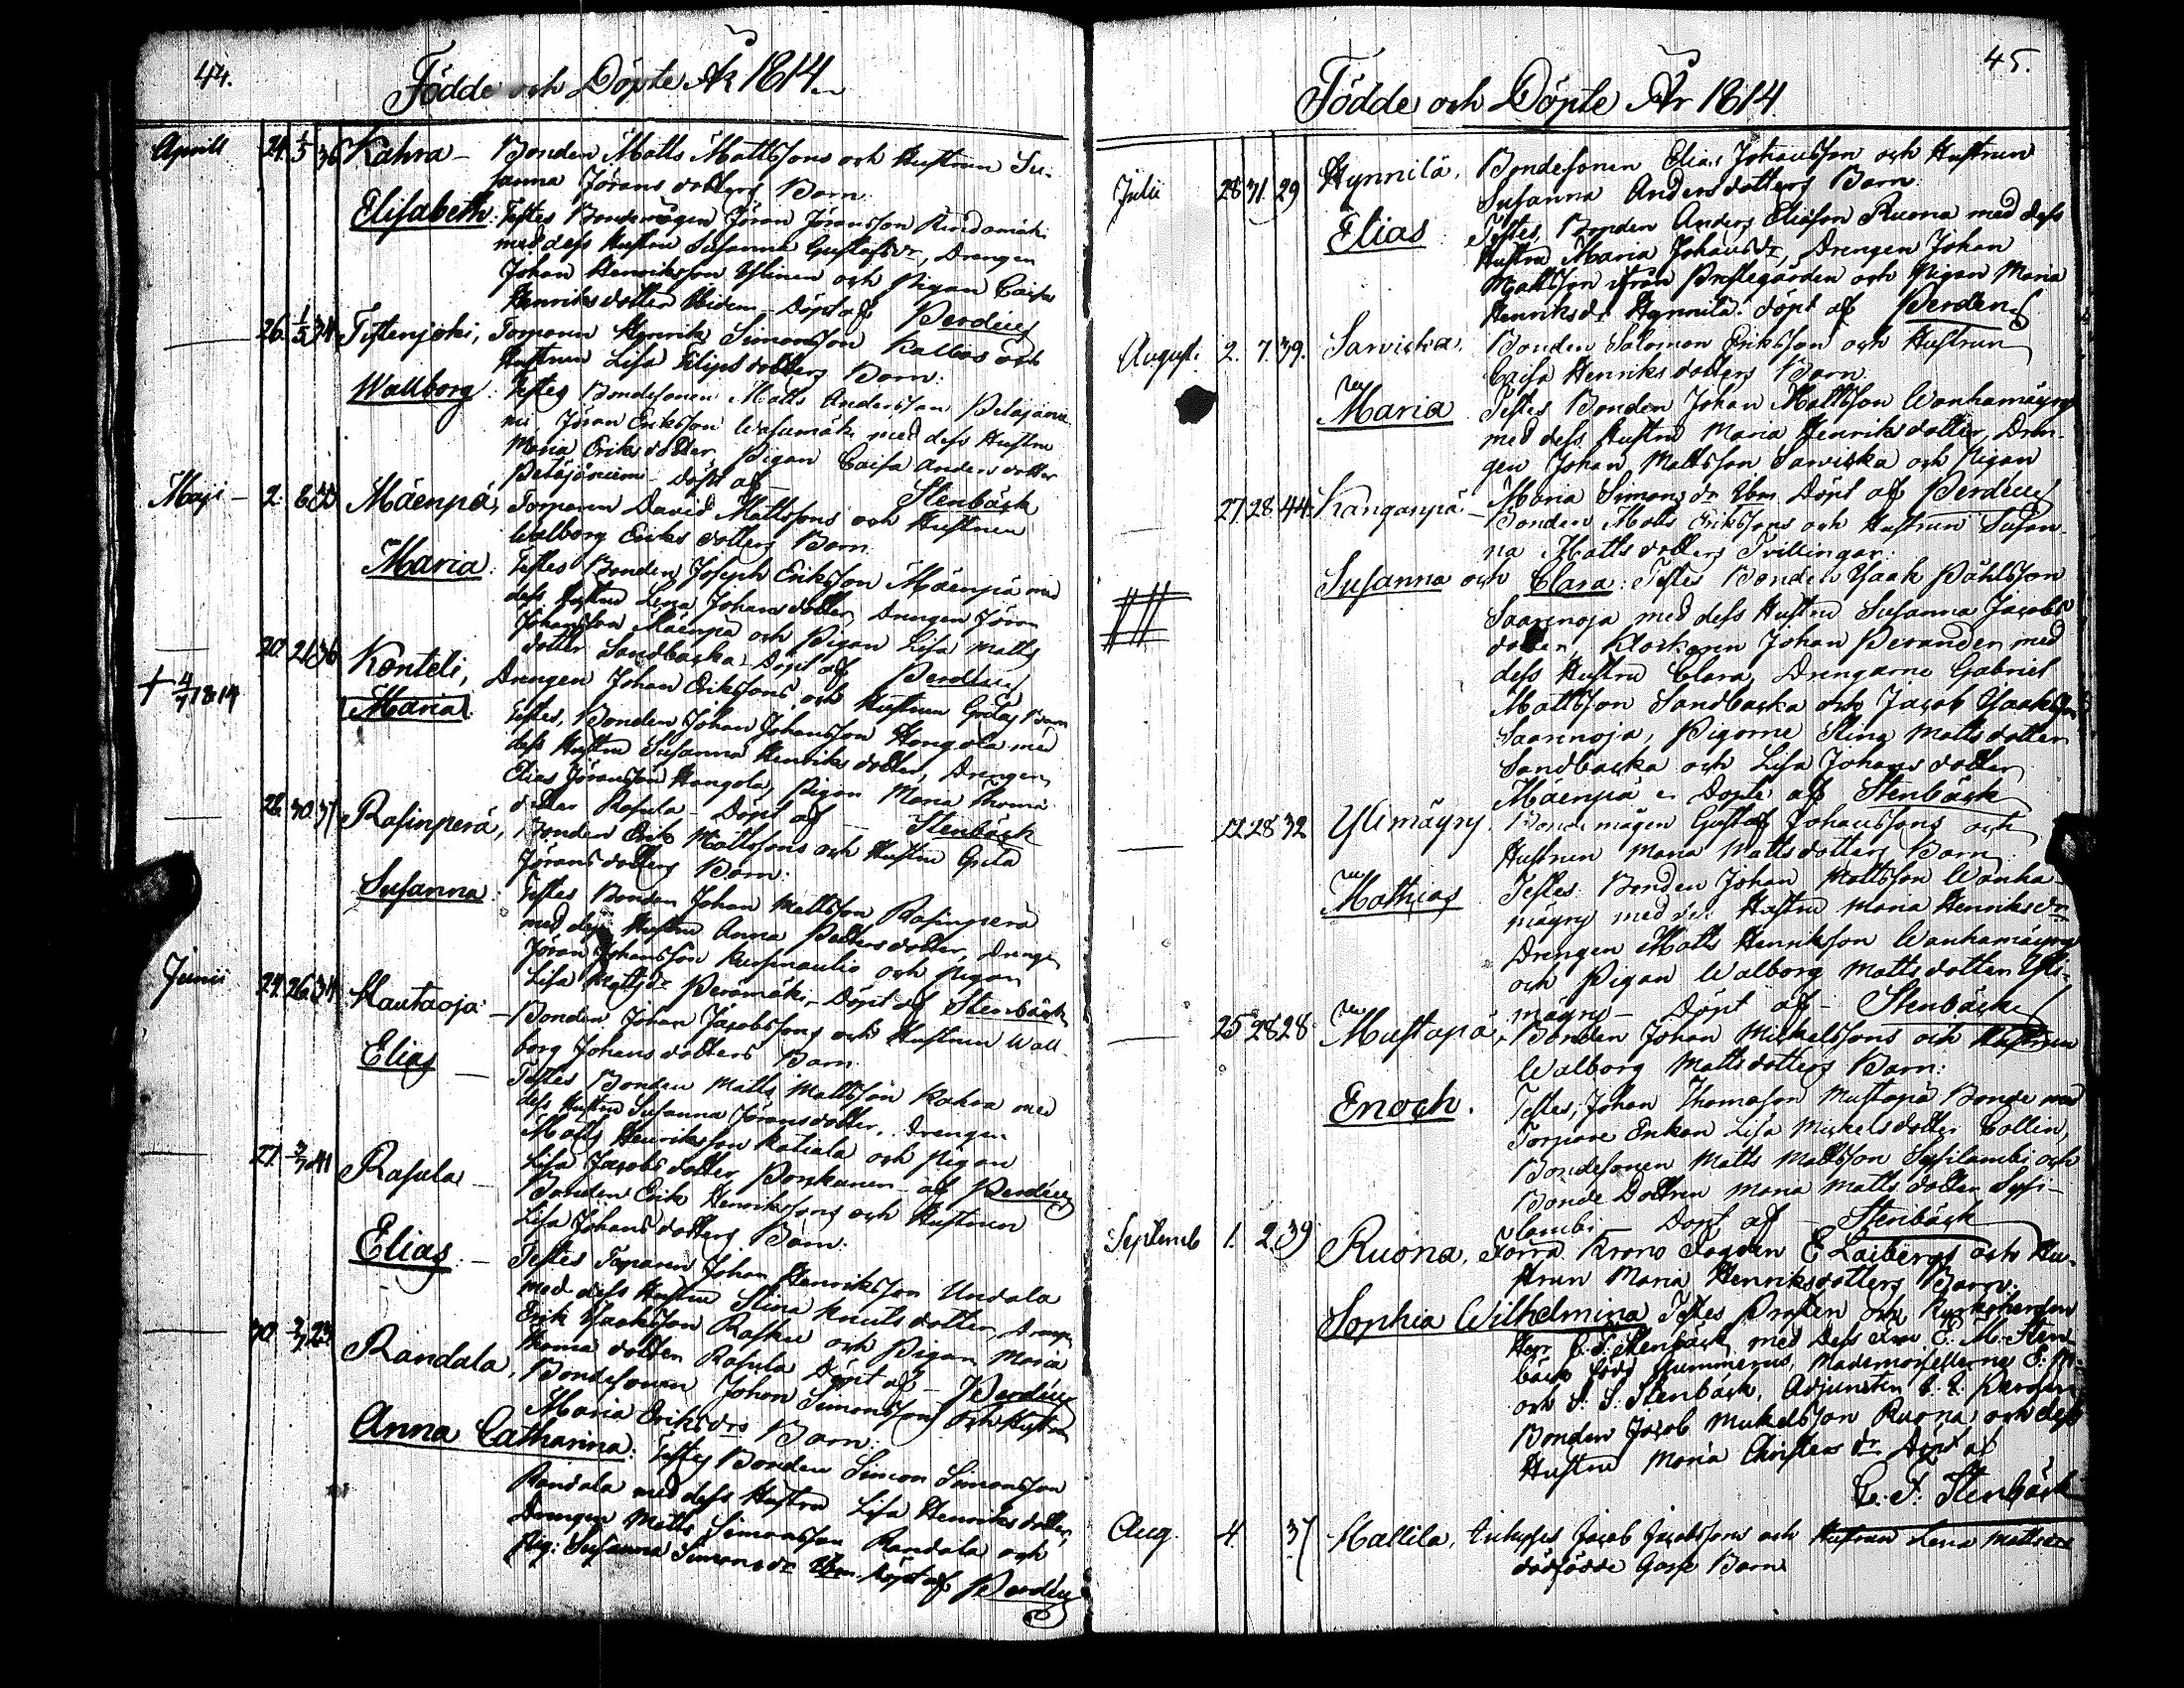 44.
Födde och Döpte År 1814.
Aprill 24. 1/5 36 Kahra - Bonden Matts Mattssons och Hustrun Su-
sanna Jörans dotters Barn.
Elisabeth: Testes Bondemågen Jöran Jöransson
med dess Hustru Susanna Gustafsdr, Drengen
Johan Henriksson Ylinen och Pigan Caisa
Henriksdotter Döpt af Perdén
26. 1/5 34 Torparen Henrik Simonsson Kallios och
Hustrun Lisa Filips dotters Barn:
Wallborg: Testes Bondesonen Matts Andersson Petäjänie-
mi, Jöran Eriksson med dess Hustru
Maria Eriks dotter, Pigan Caisa Anders dotter
Petäjäniemi - Döpt af Stenbäck
Maji - 2. 8 Mäenpä, Torparen David Mattssons och Hustrun
Walborg Eriks dotters Barn.
Maria: Testes Bonden Joseph Eriksson Mäenpä med
dess Hustru Lena Johansdotter, Drengen Jöran
Johansson Mäenpä och Pigan Lisa Matts
dotter Sandbacka. Döpt af Perdén
20. 21 36 Konteli, Drengen Johan Erikssons och Hustrun Gretas Barn
+ 4/7 1814
Maria. Testes, Bonden Johan Johansson Hongola med
dess Hustru Susanna Henriks dotter, Drengen
Elias Jöransson Hongola, Pigan Maria Thoma
dotter Rasula - Döpt af Stenbäck
28. 30 37 Rasinperä, Bonden Erik Mattssons och Hustru Greta
Jörans dotters Barn:
Susanna: Testes Bonden Johan Mattsson Rasinperä
med dess Hustru Anna Petters dotter, Drengen
Jöran Johansson och Pigan
Lisa Mattsdr Perämäki, Döpt af Stenbäck
Junii 24. 26 34 Hautaoja - Bonden Johan Jacobssons och Hustrun Wall-
borg Johans dotters Barn.
Elias - Testes Bonden Matts Mattsson Kahra med
dess Hustru Susanna Jöransdotter, Drengen
Matts Henriksson Katiala och Pigan
Lisa Jacobs dotter af Perdén
27. 3/7 41 Rasula - Bonden Erik Henrikssons och Hustrun
Lisa Johans dotters Barn:
Elias: - Testes Torparen Johan Henriksson Undala
med dess Hustru Stina Knuts dotter, Drengen
Erik Isaaksson Rasku och Pigan Maria
Thoma dotter Rasula Döpt af - Perdén
30. 3/7 23 Randala, Bondesonen Johan Simonssons och Hustru
Maria Eriksdrs Barn:
Anna Catharina: Testes Bonden Simon Simonsson
Randala med dess Hustru Lisa Henriks dotter,
Drengen Matts Simonsson Randala och
Pig: Susanna Simonsdr Ibm. Döpt af Perdén
45.
Födde och Döpte År 1814.
Julii 28 31 29 Hynnilä, Bondesonen Elias Johansson och Hustrun
Susanna Andersdotters Barn.
Elias: Testes, Bonden Anders Eliasson Ruona med dess
Hustru Maria Johansdr, Drengen Johan
Mattsson från Prestegården och Pigan Maria
Henriksdr Hynnilä. Döpt af Perdén
August. 2. 7. 39. Sarvicka, Bonden Salomon Eriksson och Hustrun
Caisa Henriks dotters Barn.
Maria Testes Bonden Johan Mattsson Wanhamäyry
med dess Hustru Maria Henriksdotter, Dren-
gen Johan Mattsson Sarvicka och Pigan
Maria Simonsdr Ibm. Döpt af Perdén
27. 28. 44. Kangaspä - Bonden Matts Erikssons och Hustrun Susan-
na Mattsdotters Tvillingar:
Susanna och Clara: Testes Bonden Isaak Påhlsson
Saarinoja med dess Hustru Susanna Jacobs
dotter, Klockaren Johan Perander med
dess Hustru Clara, Drengarne Gabriel
Mattsson Sandbacka och Jacob Isaaksson
Saarinoja, Pigorne Stina Mattsdotter
Sandbacka och Lisa Johansdotter
Mäenpä. Döpte af Stenbäck
22. 28 32 Ylimäyry. Bondemågen Gustaf Johanssons och
Hustrun Maria Mattsdotters Barn:
Mathias Testes Bonden Johan Mattsson Wanha-
mäyry med dess Hustru Maria Henriksdr
Drengen Matts Henriksson Wanhamäyry
och Pigan Walborg Mattsdotter Yli-
mäyry - Döpt af - Stenbäck
25 28 28. Mustapä, Bonden Johan Mickelssons och Hustrun
Walborg Mattsdotters Barn:
Enoch. Testes, Johan Thomasson Mustapä Bonde med
Torpare Enkan Lisa Mickelsdotter Collin,
Bondesonen Matts Mattsson Sysilambi och
Bonde Dottren Maria Mattsdotter Sysi-
lambi - Döpt af - Stenbäck
Septemb 1. 2. 39 Ruona, Förra Krono Fogden E Lagbergs och Hu-
strun Maria Henriksdotters Barn:
Sophia Wilhelmina Testes Prosten och Kyrkoherden
Herr C. F. Stenbäck, med Dess Fru E. M. Sten-
bäck född Gummerus, Mademoisellerne E: M:
och S. S. Stenbäck, Adjuncten
Bonden Jacob Mickelsson Ruona och dess
Hustru Maria Christersdr Döpt af
C. F. Stenbäck
Aug. 4. 37 Hallila, Jacob Jacobssons och Hustrun Lena Mattsdrs
dödfödde Gosse Barn